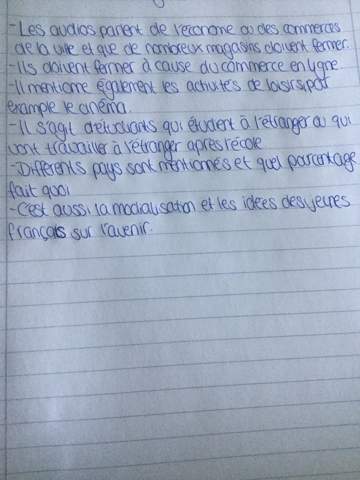 -Les audios parlent de l'économie ou des commerces
de la ville et que de nombreux magasins doivent fermer.
-Ils doivent fermer à cause du commerce en ligne
-Il mentionne également les activités de loisirs, par
example le cinéma.
-Il s'agit d'étudiants qui étudent à l'étranger ou qui
vont travailler à l'étranger après l'école
-Différents pays sont mentionnés et quel porcentage
fait quoi
-C'est aussi la modialisation et les idées des jeunes
français sur l'avenir.